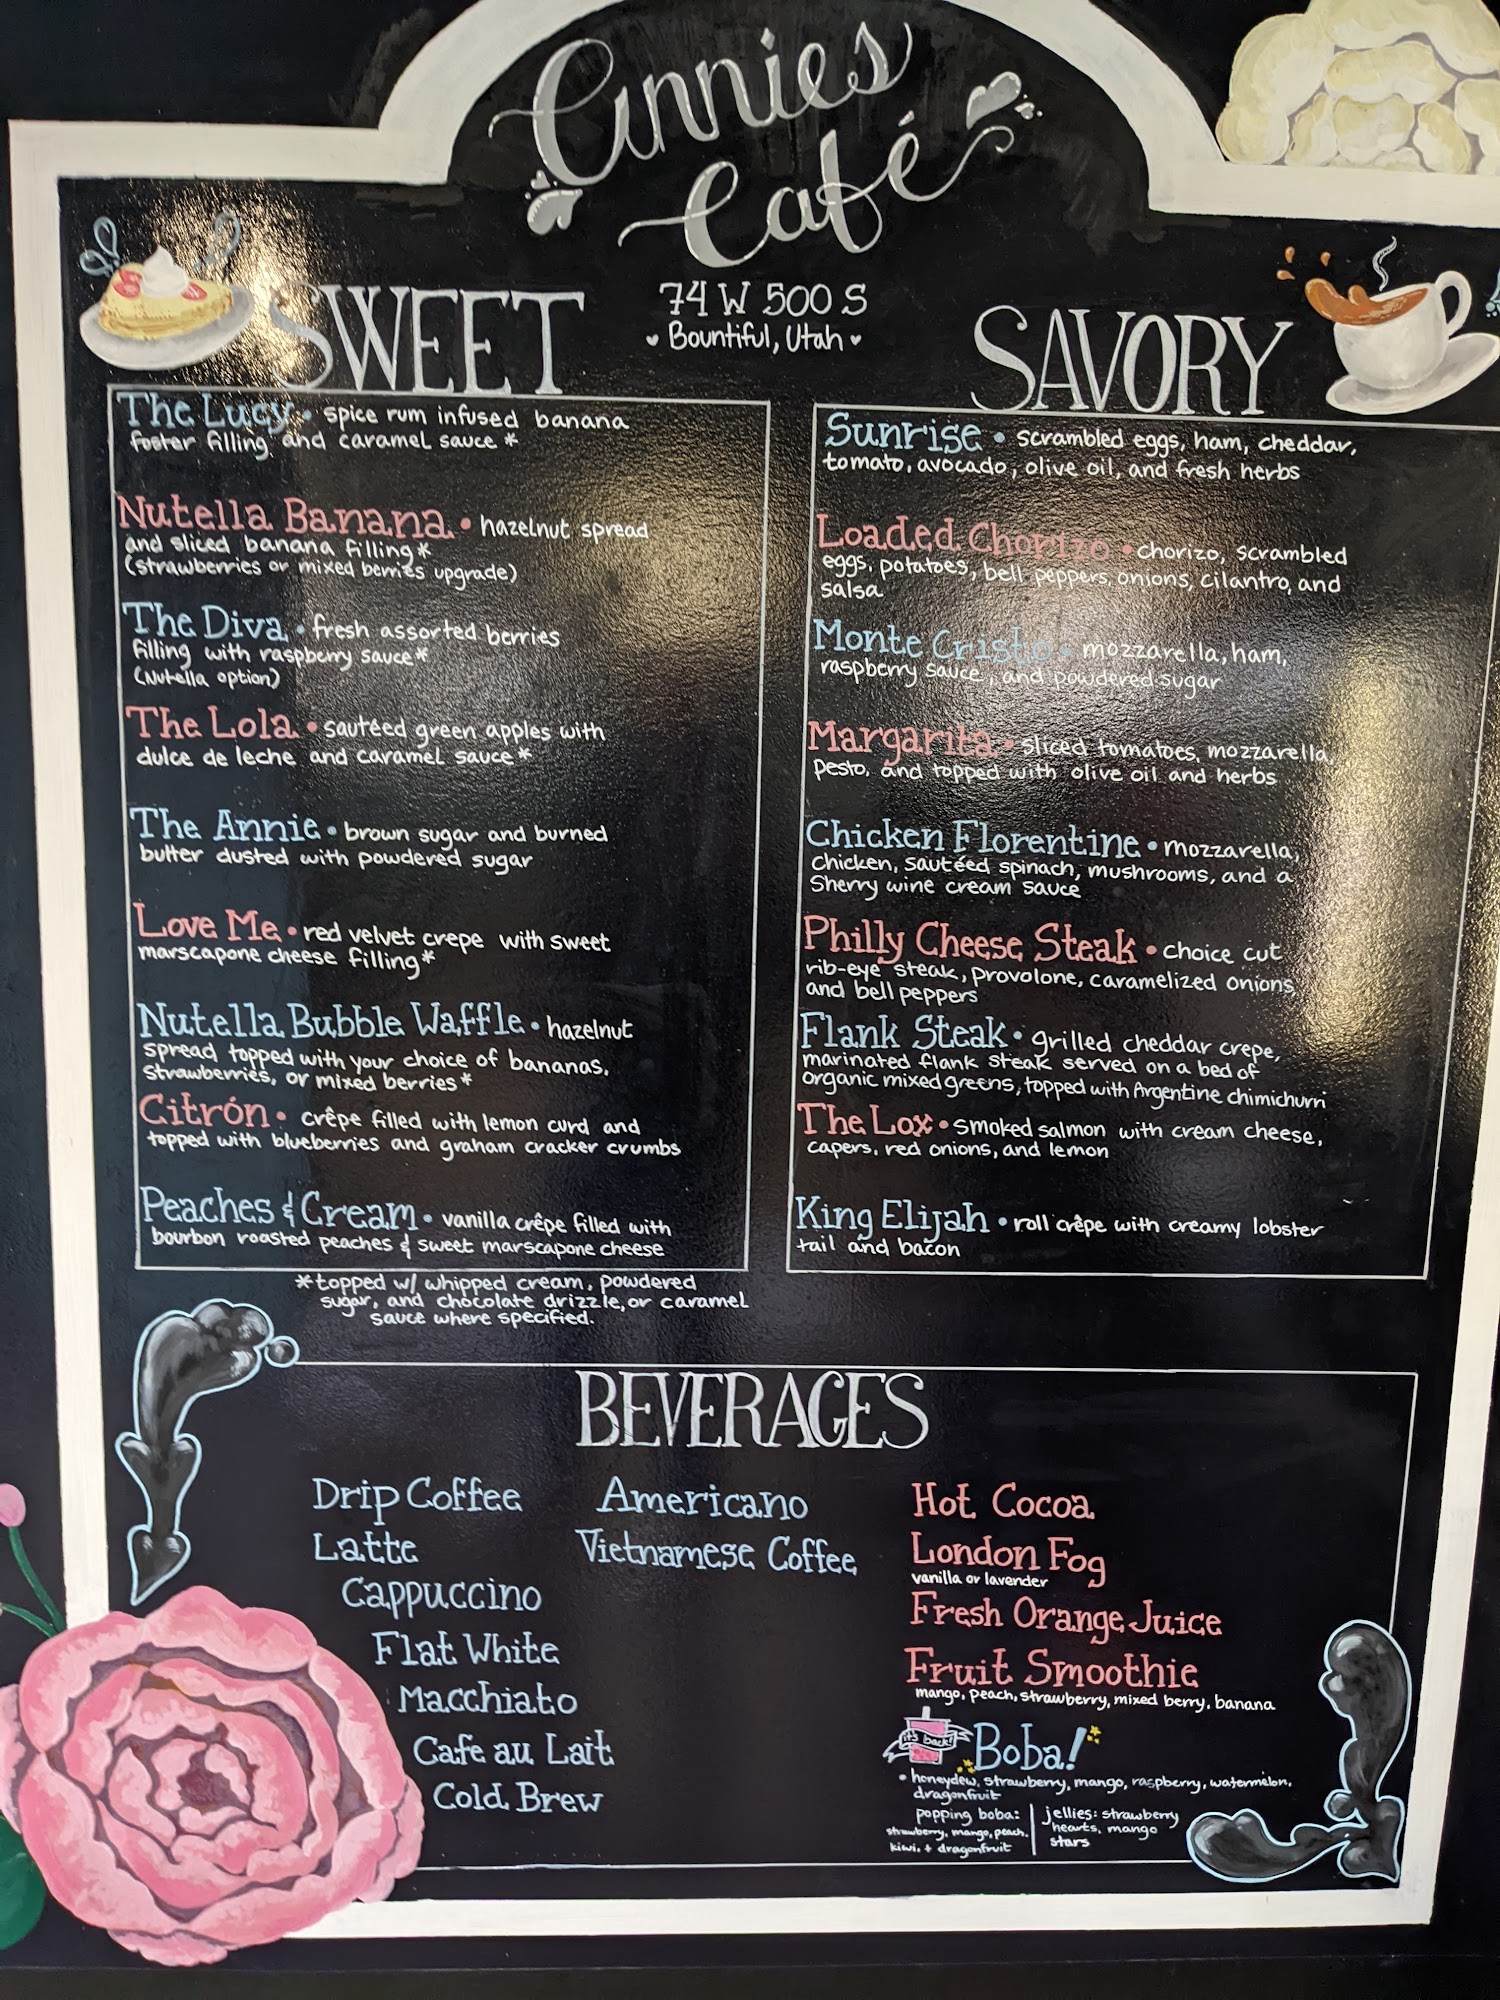 Annies
Café
74 W 500 S
Bountiful, Utah
SWEET
The Lucy • spice rum infused banana
foster filling and caramel sauce *
Nutella Banana • hazelnut spread
and sliced banana filling*
(strawberries or mixed berries upgrade)
The Diva • fresh assorted berries
filling with raspberry sauce*
(Nutella option)
The Lola • sautéed green apples with
dulce de leche and caramel sauce*
The Annie • brown sugar and burned
butter dusted with powdered sugar
Love Me • red velvet crepe with sweet
marscapone cheese filling*
Nutella Bubble Waffle • hazelnut
spread topped with your choice of bananas,
strawberries, or mixed berries*
Citrón • crêpe filled with lemon curd and
topped with blueberries and graham cracker crumbs
Peaches & Cream • vanilla crêpe filled with
bourbon roasted peaches & sweet marscapone cheese
*topped w/ whipped cream, powdered
sugar, and chocolate drizzle, or caramel
sauce where specified.
SAVORY
Sunrise • scrambled eggs, ham, cheddar,
tomato, avocado, olive oil, and fresh herbs
Loaded Chorizo • chorizo, scrambled
eggs, potatoes, bell peppers, onions, cilantro, and
salsa
Monte Cristo • mozzarella, ham,
raspberry sauce, and powdered sugar
Margarita • sliced tomatoes, mozzarella,
pesto, and topped with olive oil and herbs
Chicken Florentine • mozzarella,
chicken, sautéed spinach, mushrooms, and a
Sherry wine cream sauce
Philly Cheese Steak • choice cut
rib-eye steak, provolone, caramelized onions,
and bell peppers
Flank Steak • grilled cheddar crepe,
marinated flank steak served on a bed of
organic mixed greens, topped with Argentine chimichurri
The Lox • smoked salmon with cream cheese,
capers, red onions, and lemon
King Elijah • roll crêpe with creamy lobster
tail and bacon
BEVERAGES
Drip Coffee
Latte
Cappuccino
Flat White
Macchiato
Cafe au Lait
Cold Brew
Americano
Vietnamese Coffee
Hot Cocoa
London Fog
vanilla or lavender
Fresh Orange Juice
Fruit Smoothie
mango, peach, strawberry, mixed berry, banana
it's back!
Boba!
• honeydew, strawberry, mango, raspberry, watermelon,
dragonfruit
popping boba:
strawberry, mango, peach,
kiwi, + dragonfruit
jellies: strawberry
hearts, mango
stars